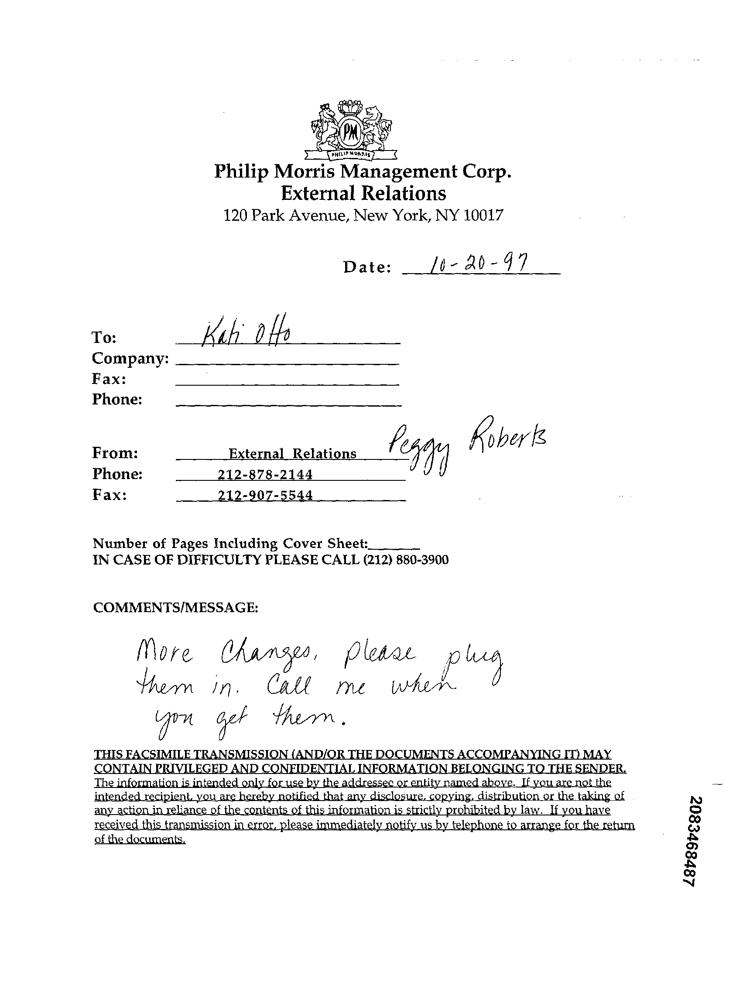 PM
PHILIP MORRIS
Philip Morris Management Corp.
External Relations
120 Park Avenue, New York, NY 10017
Date: 10-20-97
To: Kati Otto
Company:
Fax:
Phone:
From: External Relations Peggy Roberts
Phone: 212-878-2144
Fax: 212-907-5544
Number of Pages Including Cover Sheet:
IN CASE OF DIFFICULTY PLEASE CALL (212) 880-3900
COMMENTS/MESSAGE:
More changes, please plug
them in. Call me when
you get them.
THIS FACSIMILE TRANSMISSION (AND/OR THE DOCUMENTS ACCOMPANYING IT) MAY
CONTAIN PRIVILEGED AND CONFIDENTIAL INFORMATION BELONGING TO THE SENDER.
The information is intended only for use by the addressee or entity named above. If you are not the
intended recipient, you are hereby notified that any disclosure, copying, distribution or the taking of
any action in reliance of the contents of this information is strictly prohibited by law. If you have
received this transmission in error, please immediately notify us by telephone to arrange for the return
of the documents.
2083468487